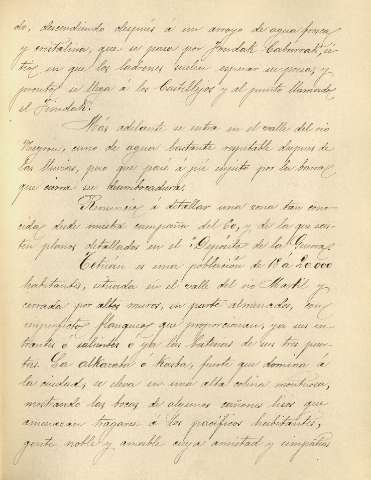 do, descendiendo después á un arroyo de agua fresca
y cristalina, que se pasa por Fondak
en que los ladrones suelen esperar su presa, y
pronto se llega á los Castillejos y al punto llamado
el Finidak.
Más adelante se entra en el valle del rio
Negron, curso de agua bastante respetable despues de
las lluvias, pero que pasé á pié enjuto por la barra
que cierra su desembocadura.
Renuncio á detallar una zona tan cono-
cida desde nuestra campaña del 60, y de la que exis-
ten planos detallados en el Deposito de la Guerra.
Tetuán es una población de 18 á 20.000
habitantes, situada en el valle del rio Martil y
cerrada por altos muros, en parte almenados, con
imperfectos flanqueos que proporcionan, ya sus en-
trantes ó salientes ó ya las baterias de sus tres puer-
tas. La alkazaba ó Kasba, fuerte que domina á
la ciudad, se eleva en una alta colina montuosa,
mostrando las bocas de algunos cañones lisos que
amenazan á los pacíficos habitantes,
gente noble y amable cuya amistad y simpatias